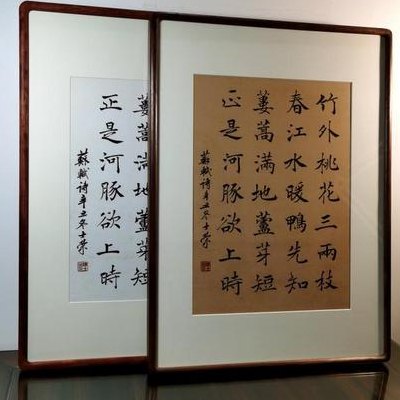 竹外桃花三兩枝
春江水暖鴨先知
蔞蒿滿地蘆芽短
正是河豚欲上時
蘇軾詩辛丑冬士榮
蔞蒿滿地蘆芽短
正是河豚欲上時
蘇軾詩辛丑冬士榮